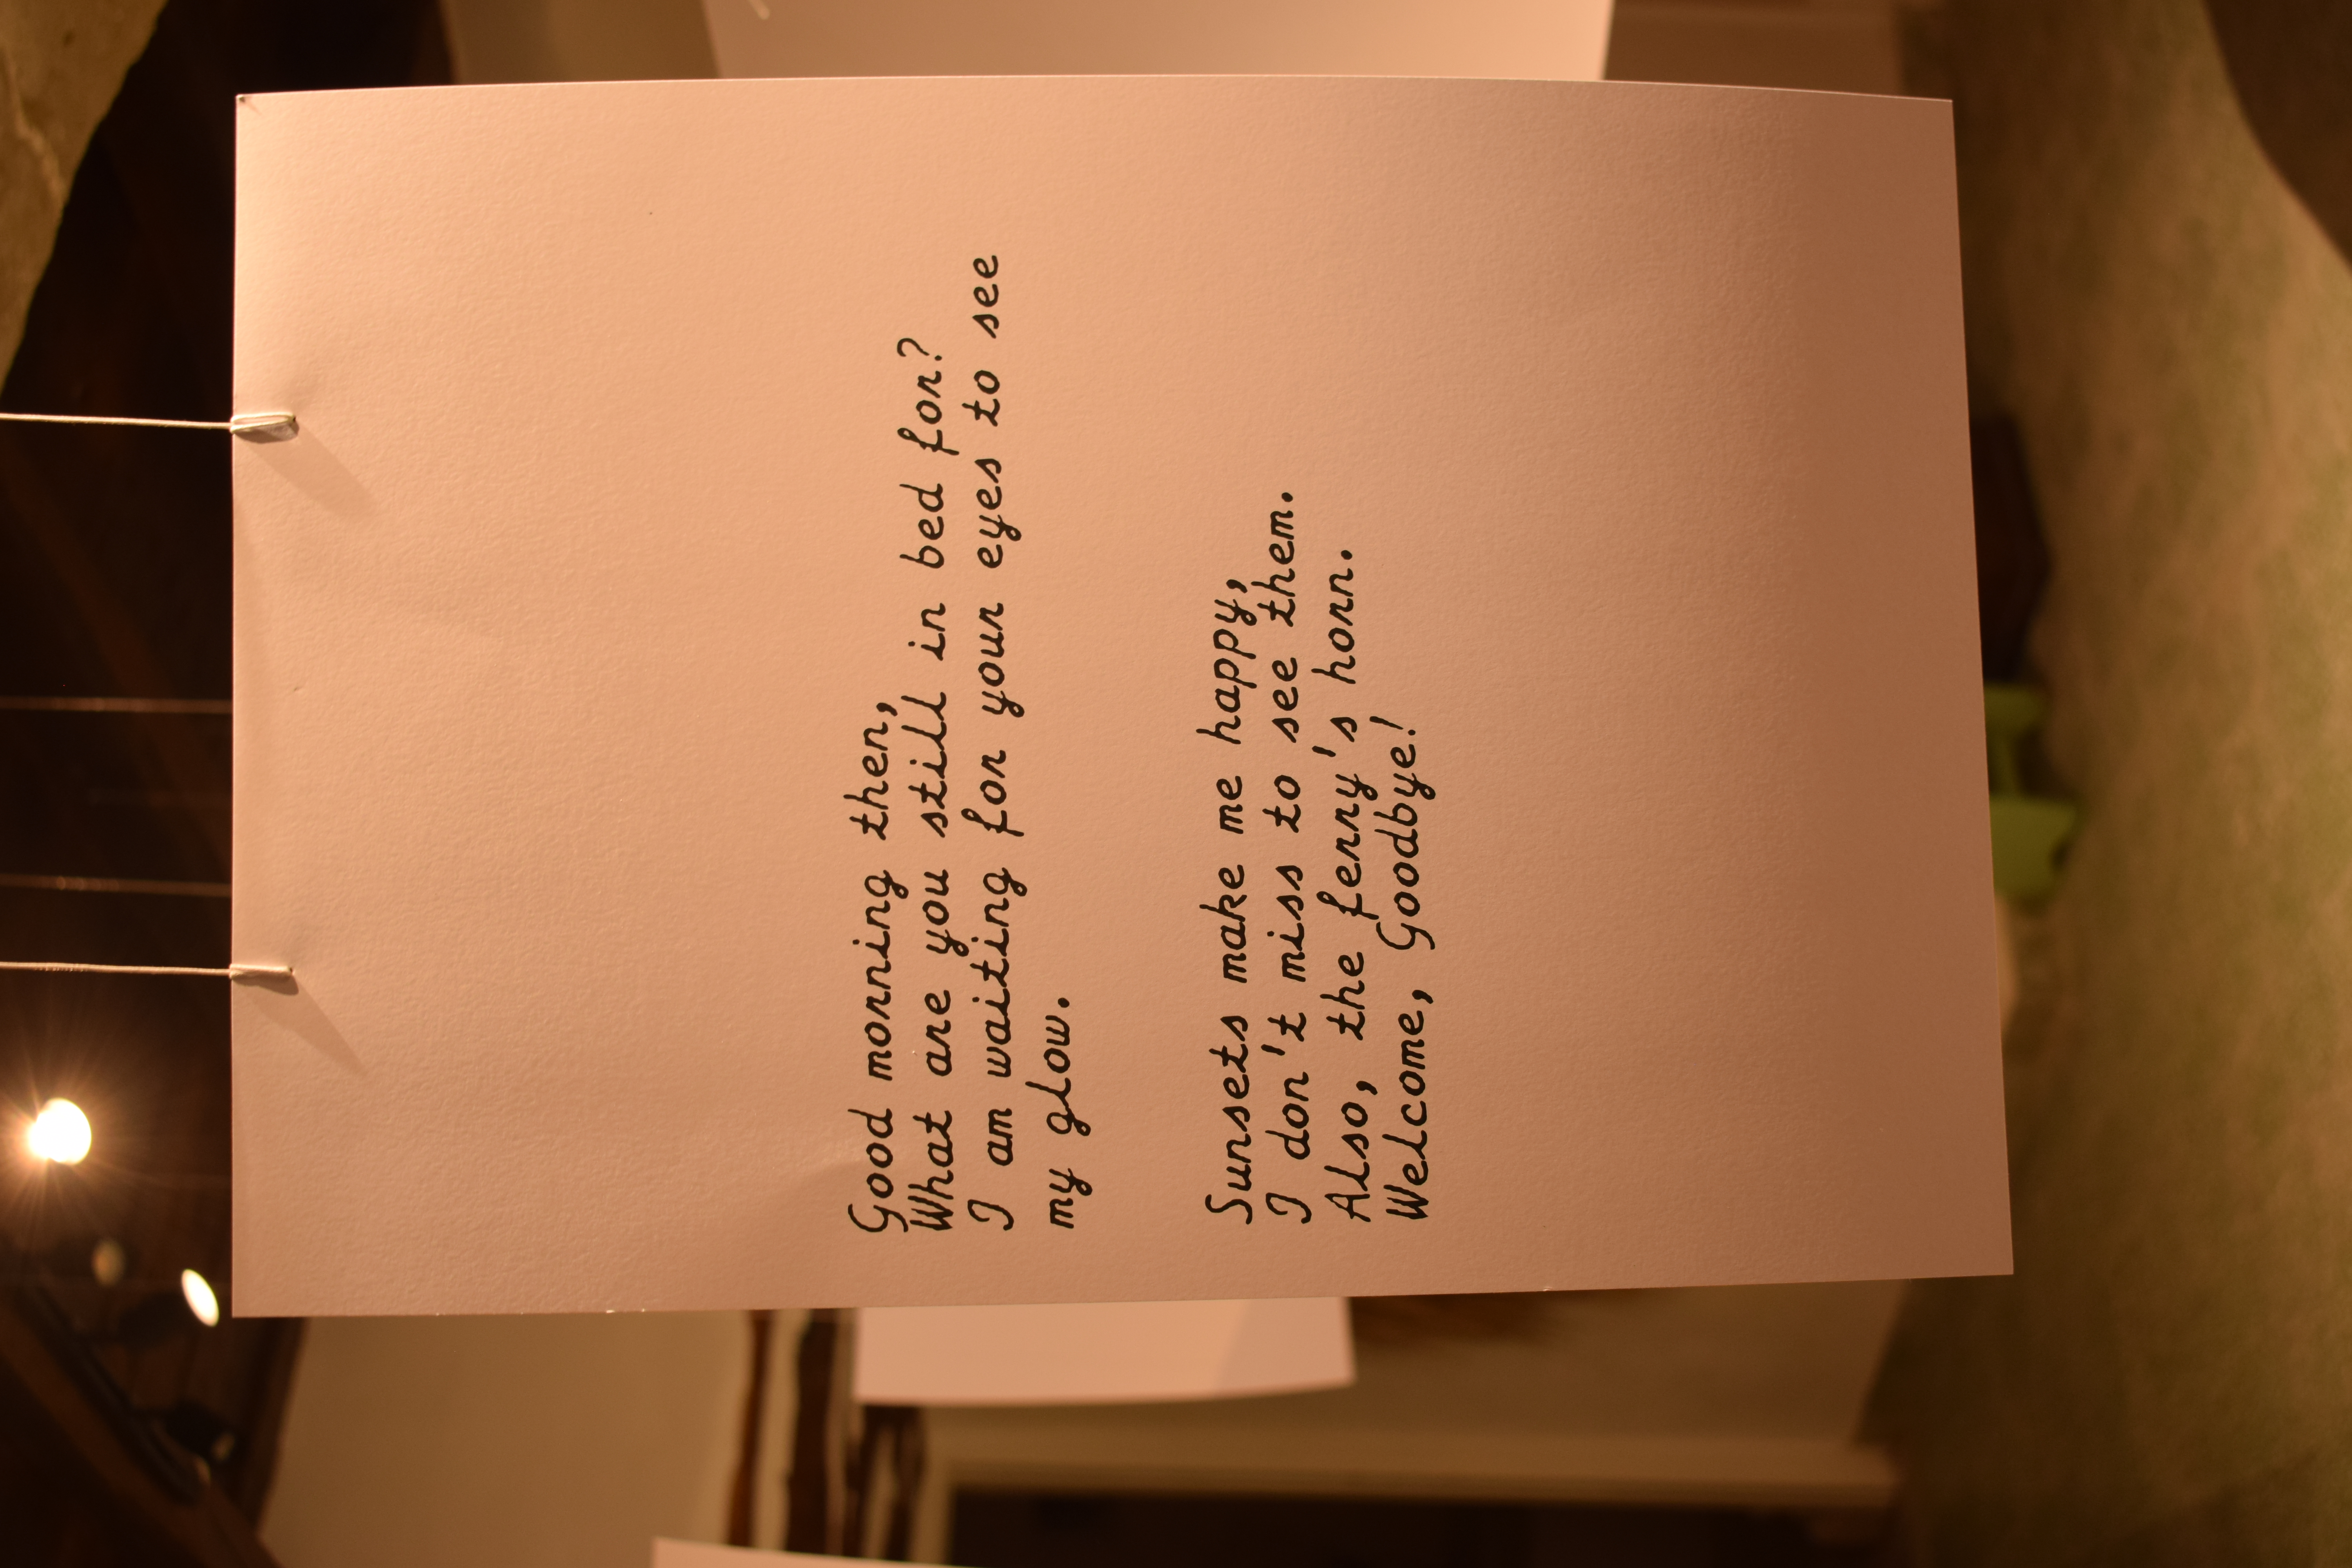 Good morning then,
What are you still in bed for?
I am waiting for your eyes to see
my glow.
Sunsets make me happy,
I don't miss to see them.
Also, the ferry's horn.
Welcome, Goodbye!